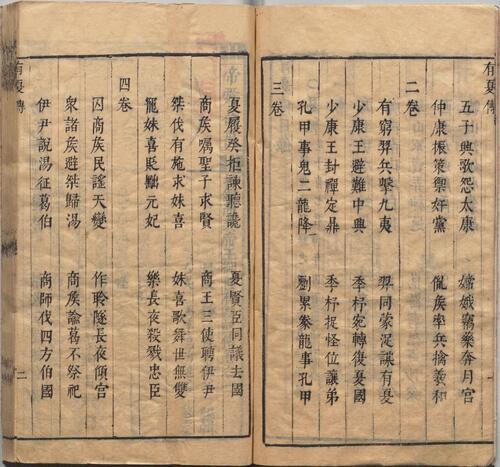 有夏傳
五子興歌怨太康 嫦娥竊藥奔月宮
仲康振策禦奸黨 胤侯率兵擒羲和
二卷
有窮羿兵擊九夷 羿同蒙浞謀有夏
少康王避難中興 季杼宛轉復夏國
少康王封禪定鼎 季杼捉怪位讓弟
三卷
孔甲事鬼二龍降 劉累豢龍事孔甲
夏履癸拒諫聽讒 夏賢臣同議去國
商侯囑聖子求賢 商王三使聘伊尹
桀伐有施求妹喜 妹喜歌舞世無雙
寵妹喜貶黜元妃 樂長夜殺戮忠臣
四卷
囚商侯民謠天變 作聆隧長夜傾宮
衆諸侯避桀歸湯 商侯諭葛不祭祀
伊尹說湯征葛伯 商師伐四方伯國
有夏傳 二